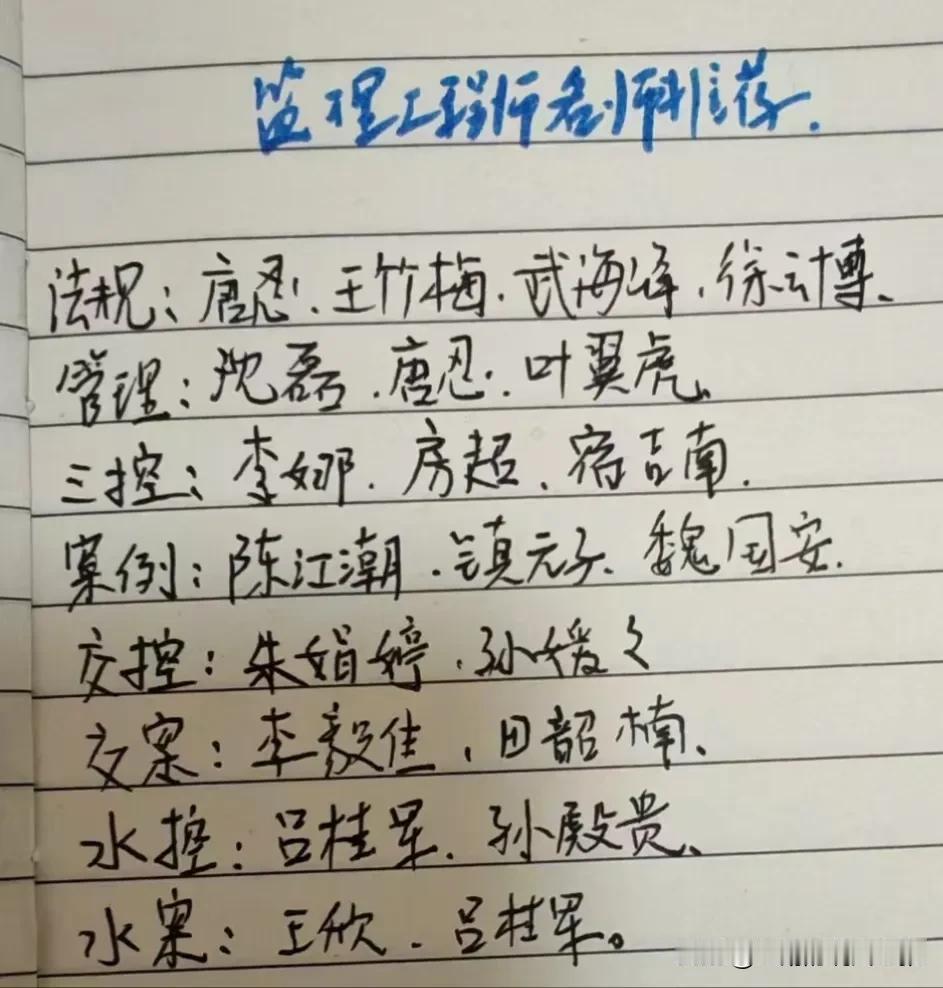 监理工程师名师推荐.
法规：唐忍.王竹梅.武海峰.徐云博、
管理：沈磊.唐忍.叶翼虎、
三控：李娜.房超、宿吉南.
案例：陈江潮.镇元子、魏国安.
交控：朱娟婷.孙媛々
交案：李毅佳、田韶楠、
水控：吕桂军.孙殿贵、
水案：王欣.吕桂军。